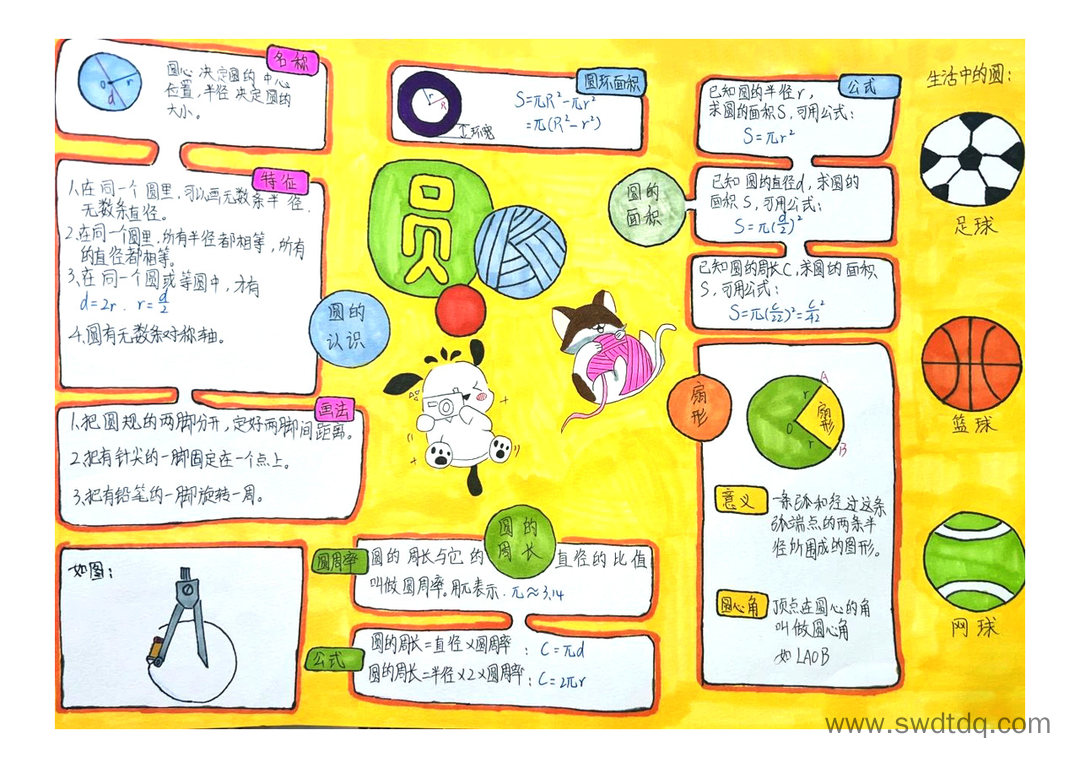 名称
圆心 决定圆的 中心
位置，半径 决定圆的
大小。
O
r
d
特征
1.在同一个圆里，可以画无数条半径.
无数条直径。
2.在同一个圆里，所有半径都相等，所有
的直径都相等。
3.在同一个圆或等圆中，才有
d=2r . r=d/2
4.圆有无数条对称轴。
圆的
认识
画法
1.把圆规的两脚分开，定好两脚间距离。
2.把有针尖的一脚固定在一个点上。
3.把有铅笔的一脚旋转一周。
如图：
圆环面积
S=πR²-πr²
=π(R²-r²)
r
R
环宽
圆
圆的
周长
圆周率
圆的 周长与它的 直径的比值
叫做圆周率。用π表示. π≈3.14
公式
圆的周长=直径×圆周率 : C=πd
圆的周长=半径×2×圆周率 : C=2πr
圆的
面积
公式
已知圆的半径r，
求圆的面积S，可用公式：
S=πr²
已知圆的直径d，求圆的
面积S，可用公式：
S=π(d/2)²
已知圆的周长C，求圆的面积
S，可用公式：
扇
形
A
r
O
扇
形
r
B
意义
一条弧和经过这条
弧端点的两条半
径所围成的图形。
圆心角
顶点在圆心的角
叫做圆心角
如∠AOB
生活中的圆：
足球
篮球
网球
www.swdtdq.com